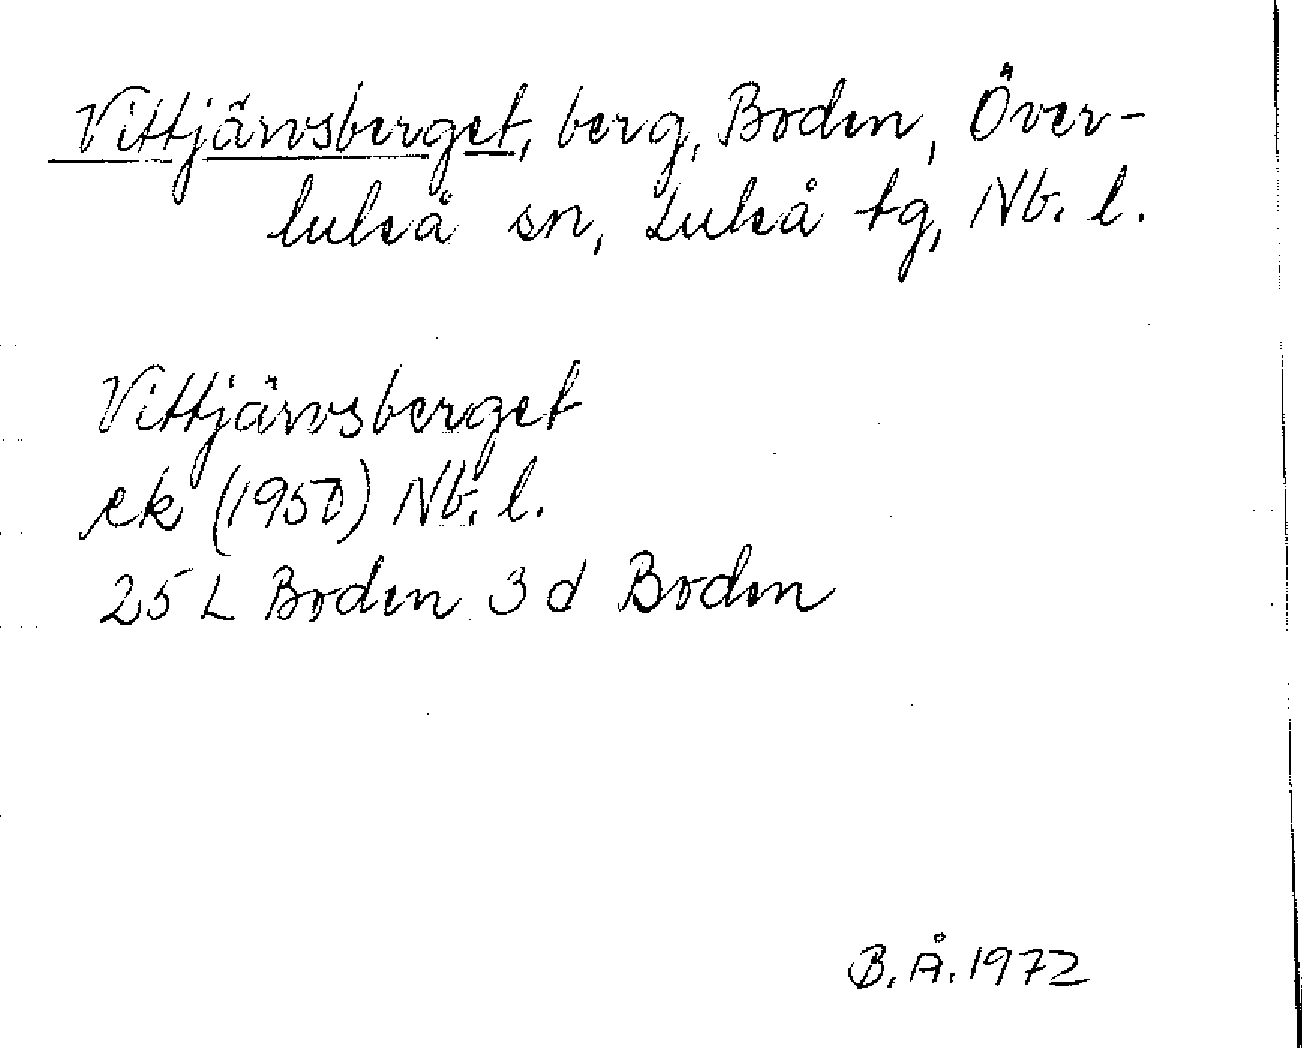 Vittjärvsberget, berg, Boden, Över-
luleå sn, Luleå tg, Nb. l.
Vittjärvsberget
ek (1950) Nb. l.
25 L Boden 3 d Boden
B. Å. 1972